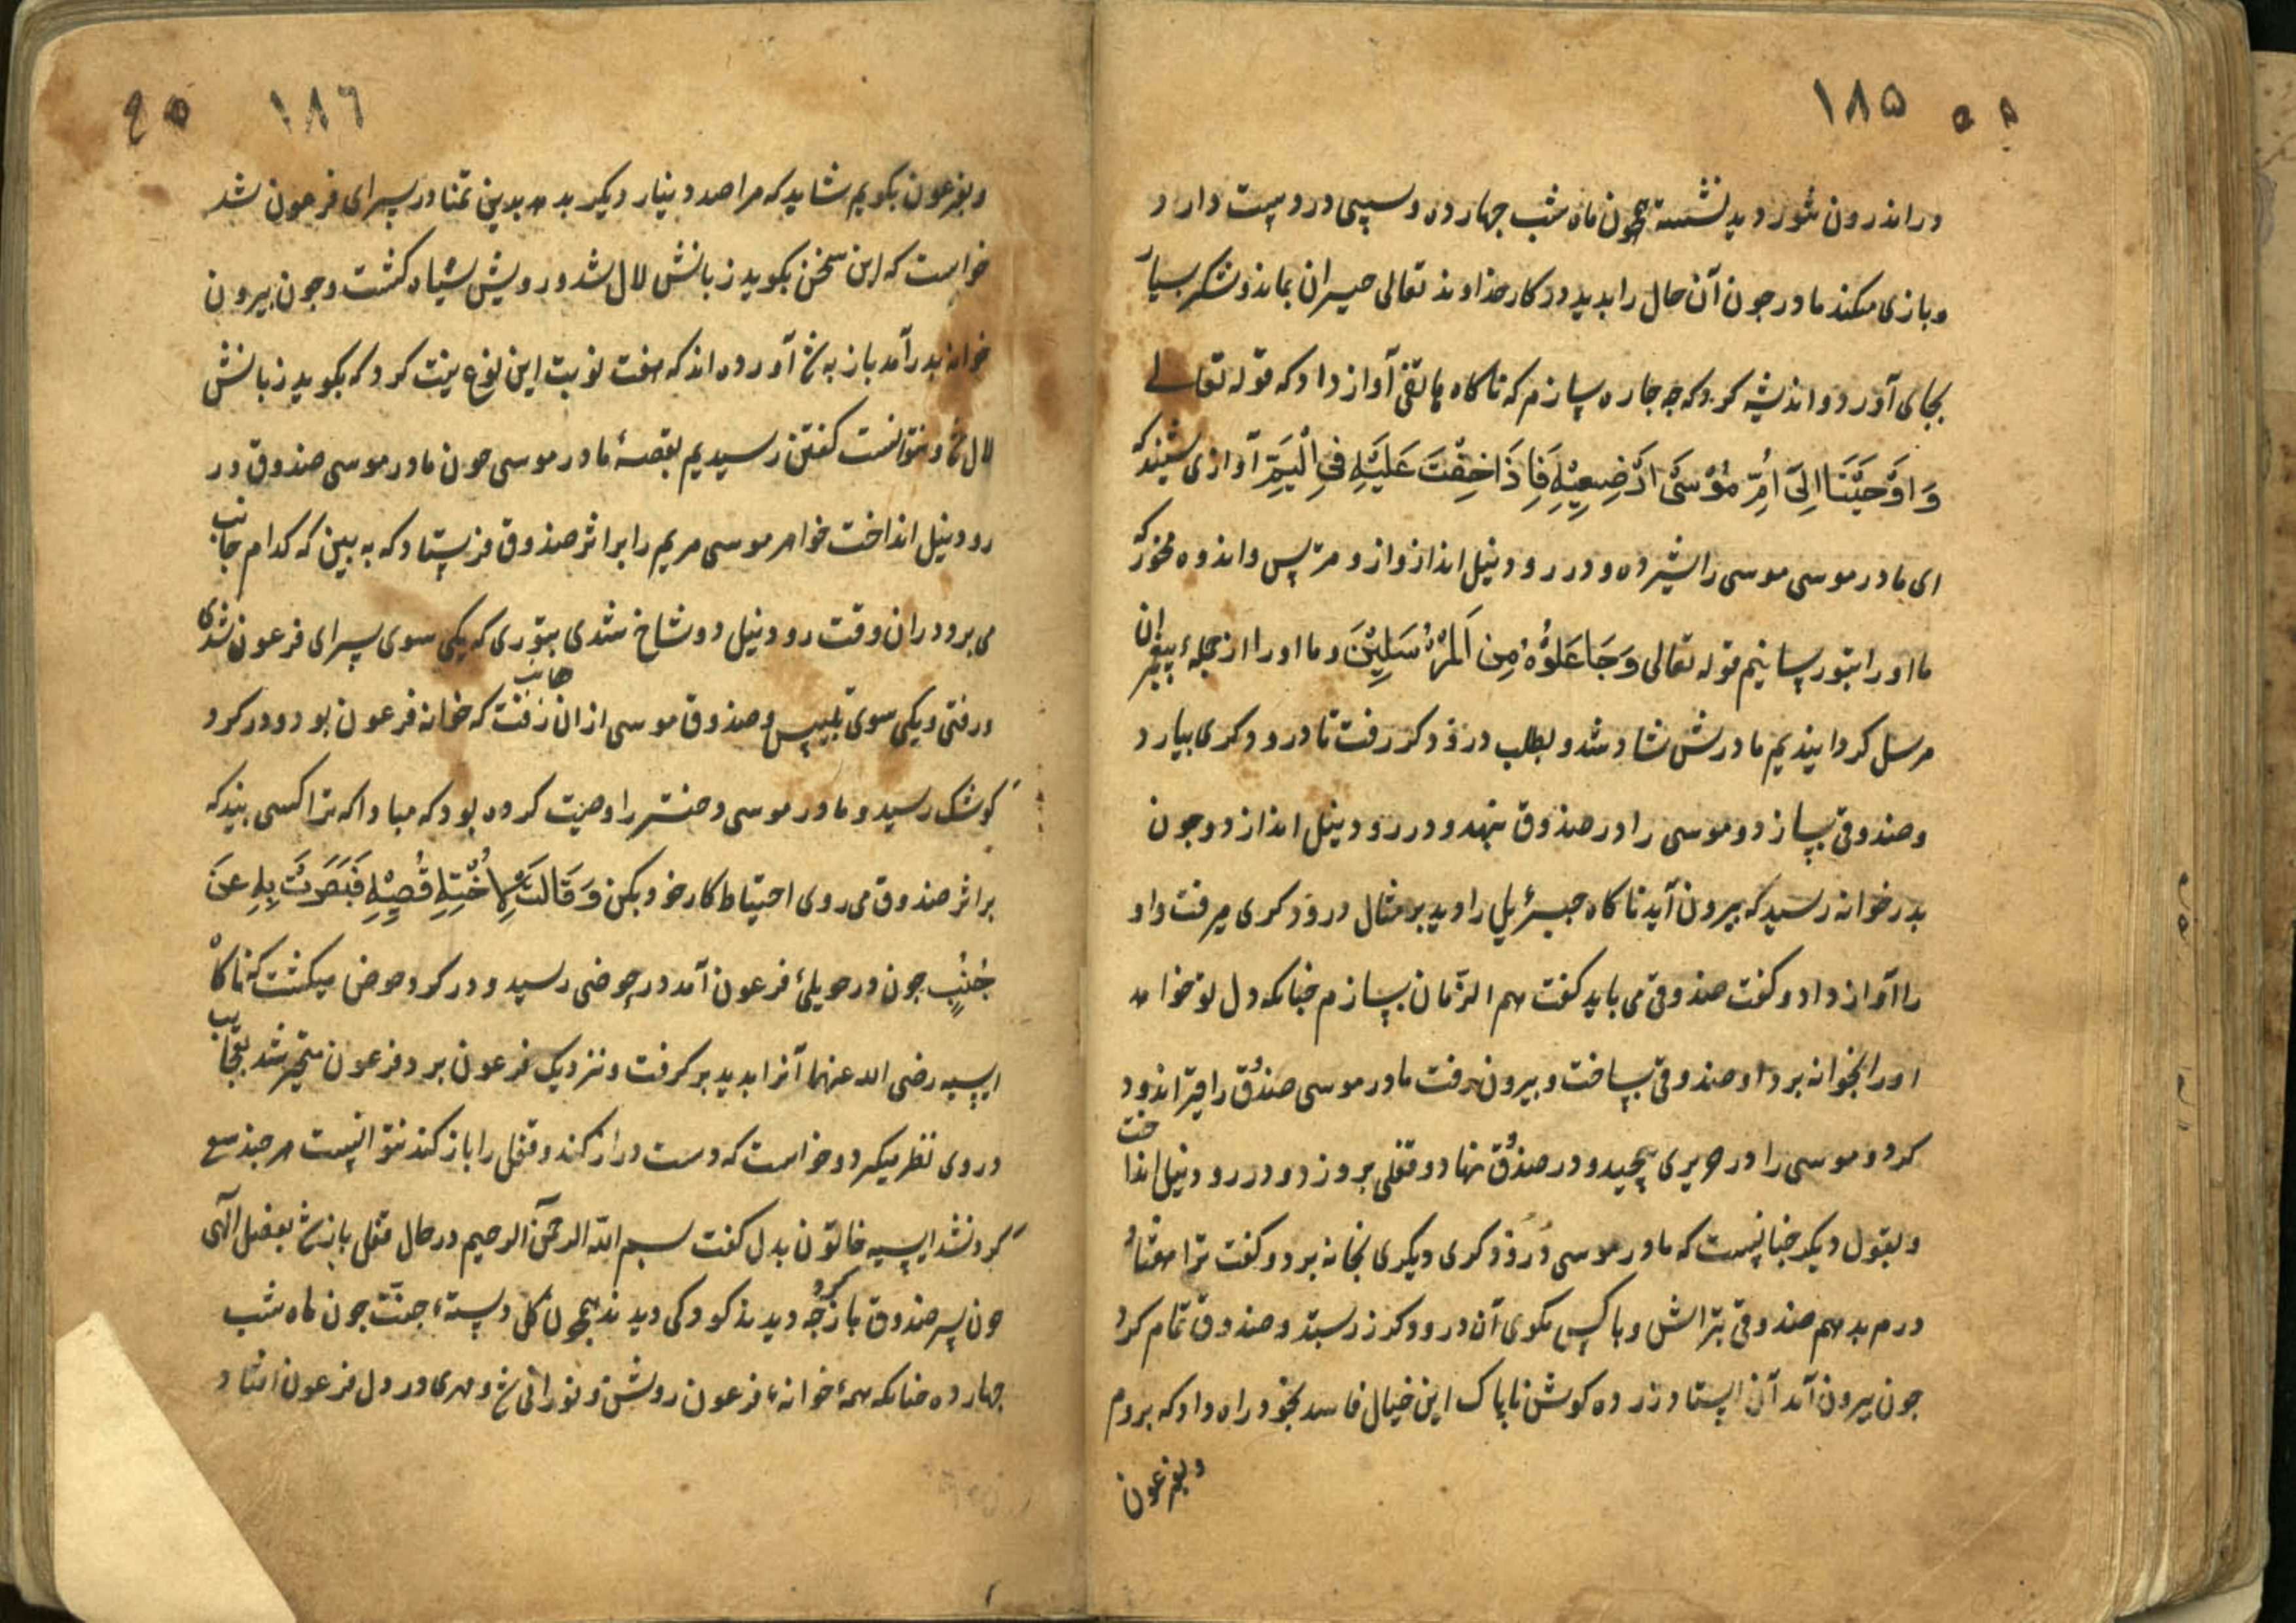 ۱۸۵
در اندرون تنور دید نشسته همچون ماه شب چهارده و سیبی در دست دارد
و بازی میکند مادر جون آن حال را بدید در کار خداوند تعالی حیران بماند و شکر بسیار
بجای آورد و اندیشه کرد که جه جاره سازم که ناکاه هاتفی آواز داد که قوله تعالے
وَاَوْحَيْنَا اِلَى اُمِّ مُوْسَى اَرْضِعِيْهِ فَاِذَا خِفْتَ عَلَيْهِ فِي الْيَمِّ آوازی شنید که
ای مادر موسی موسی را شیر ده و در رود نیل انداز و از و مترس و اندوه مخور که
ما او را بتو رسانیم قوله تعالی وَجَاعَلُوْهُ مِنَ الْمُرْسَلِيْنَ و ما او را از جملهٔ پیغمبران
مرسل کردانیدیم مادرش شاد شد و بطلب درودکر رفت تا درودکری بیارد
و صندوقی بسازد و موسی را در صندوق نهد و در رود نیل اندازد و جون
بدر خوانه رسید که بیرون آید ناکاه جبرئیل را دید بر مثال درودکری میرفت و او
را آواز داد و کفت صندوقی می باید کفت هم الزمان بسازم جنانکه دل تو خواهد
او را بخوانه برد او صندوقی بساخت و بیرون رفت مادر موسی صندق را قیراندود
کرد و موسی را در حریری پیچید و در صندق نهاد و قفلی بروزد و در رود نیل انداخت
و بقول دیکر جنانست که مادر موسی درودکری دیکری بخانه برد و کفت ترا هفتاد
درم بدهم صندوقی بتراش و با کس مکوی آن درودکر زر ستد و صندوق تمام کرد
جون بیرون آمد آن استاد زرده کوش ناپاک این خیال فاسد بخود راه داد که بروم
و بفرعون
۱۸٦
و بفرعون بکویم شاید که مرا صد دینار دیکر بدهد بدین تمنا در سرای فرعون شد
خواست که این سخن بکوید زبانش لال شد و رویش سیاه کشت و جون بیرون
خوانه بدر آمد باز به شد آورده اند که هفت نوبت این نوع نیت کرد که بکوید زبانش
لال شد و نتوانست کفتن رسیدیم بقصهٔ مادر موسی جون مادر موسی صندوق در
رود نیل انداخت خواهر موسی مریم را بر اثر صندوق فرستاد که به بین که کدام جانب
می برود در ان وقت رود نیل دو شاخ شدی بتوری که یکی سوی سرای فرعون شدی
و رفتی و یکی سوی تلبیس و صندوق موسی از ان جانب رفت که خوانه فرعون بود و در کرد
کوشک رسید و مادر موسی دختر را وصیت کرده بود که مبادا که ترا کسی بیند که
بر اثر صندوق می روی احتیاط کار خود بکن وَقَالَتْ لِاُخْتِهِ قُصِّيْهِ فَبَصُرَتْ بِهِ عَنْ
جُنُبٍ جون در حویلئ فرعون آمد در حوضی رسید و در کرد حوض میکشت که ناکاه
ایسیه رضی الله عنهما آنرا بدید بر کرفت و نزدیک فرعون برد فرعون متحیر شد بعجایب
در وی نظر میکرد و خواست که دست دراز کند و قفل را باز کند نتوانست هر جند سعے
کرد نشد ایسیه خاتون بدل کفت بسم الله الرحمن الرحیم در حال قفل باز شد بفضل الهی
جون سر صندوق باز کرد جه دیدند کودکی دیدند همچون کل دستهٔ جنت جون ماه شب
چهارده جنانکه همهٔ خوانهٔ فرعون روشن و نورانی شد و مهری در دل فرعون افتاد